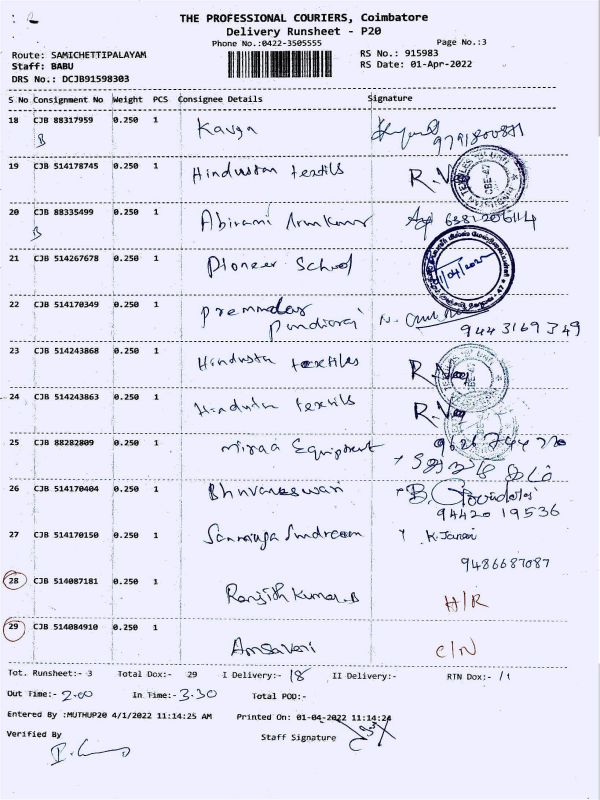 THE PROFESSIONAL COURIERS, Coimbatore
Delivery Runsheet - P20
Phone No.:0422-3505555
Page No.:3
Route: SAMICHETTIPALAYAM
RS No.: 915983
Staff: BABU
RS Date: 01-Apr-2022
DRS No.: DCJB91598303
S No Consignment No Weight PCS Consignee Details Signature
18 CJB 88317959 0.250 1 Kavya 9791800871
B
19 CJB 514178745 0.250 1 Hindustan textils
20 CJB 88335499 0.250 1 Abirami Arunkumar 6381206114
B
21 CJB 514267678 0.250 1 Pioneer School
22 CJB 514170349 0.250 1
Pandiaraj
9443169349
23 CJB 514243868 0.250 1 Hindustan textiles
24 CJB 514243863 0.250 1 textils
25 CJB 88282809 0.250 1 Equipment
26 CJB 514170404 0.250 1 Bhuvaneswari B.
94420 19536
27 CJB 514170150 0.250 1 K. Janani
9486687087
28 CJB 514087181 0.250 1 Ranjith Kumar.B H/R
29 CJB 514084910 0.250 1 Amsaveni C/N
Tot. Runsheet:- 3 Total Dox:- 29 I Delivery:- 18 II Delivery:- RTN Dox:- 11
Out Time:- 2.00 In Time:- 3.30 Total POD:-
Entered By :MUTHUP20 4/1/2022 11:14:25 AM Printed On: 01-04-2022 11:14:24
Verified By
Staff Signature